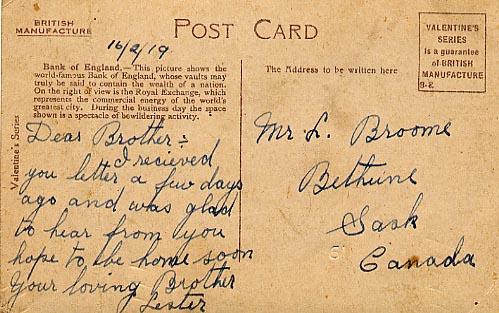 BRITISH
MANUFACTURE
POST CARD
VALENTINE'S
SERIES
is a guarantee
of BRITISH
MANUFACTURE
S-2
16/2/19
Bank of England.—This picture shows the
world-famous Bank of England, whose vaults may
truly be said to contain the wealth of a nation.
On the right of view is the Royal Exchange, which
represents the commercial energy of the world's
greatest city. During the business day the space
shown is a spectacle of bewildering activity.
The Address to be written here
Valentine's Series
Dear Brother:-
I recieved
you letter a few days
ago and was glad
to hear from you
hope to be home soon
Your loving Brother
Lester
Mr. L. Broome
Bethune
Sask
Canada